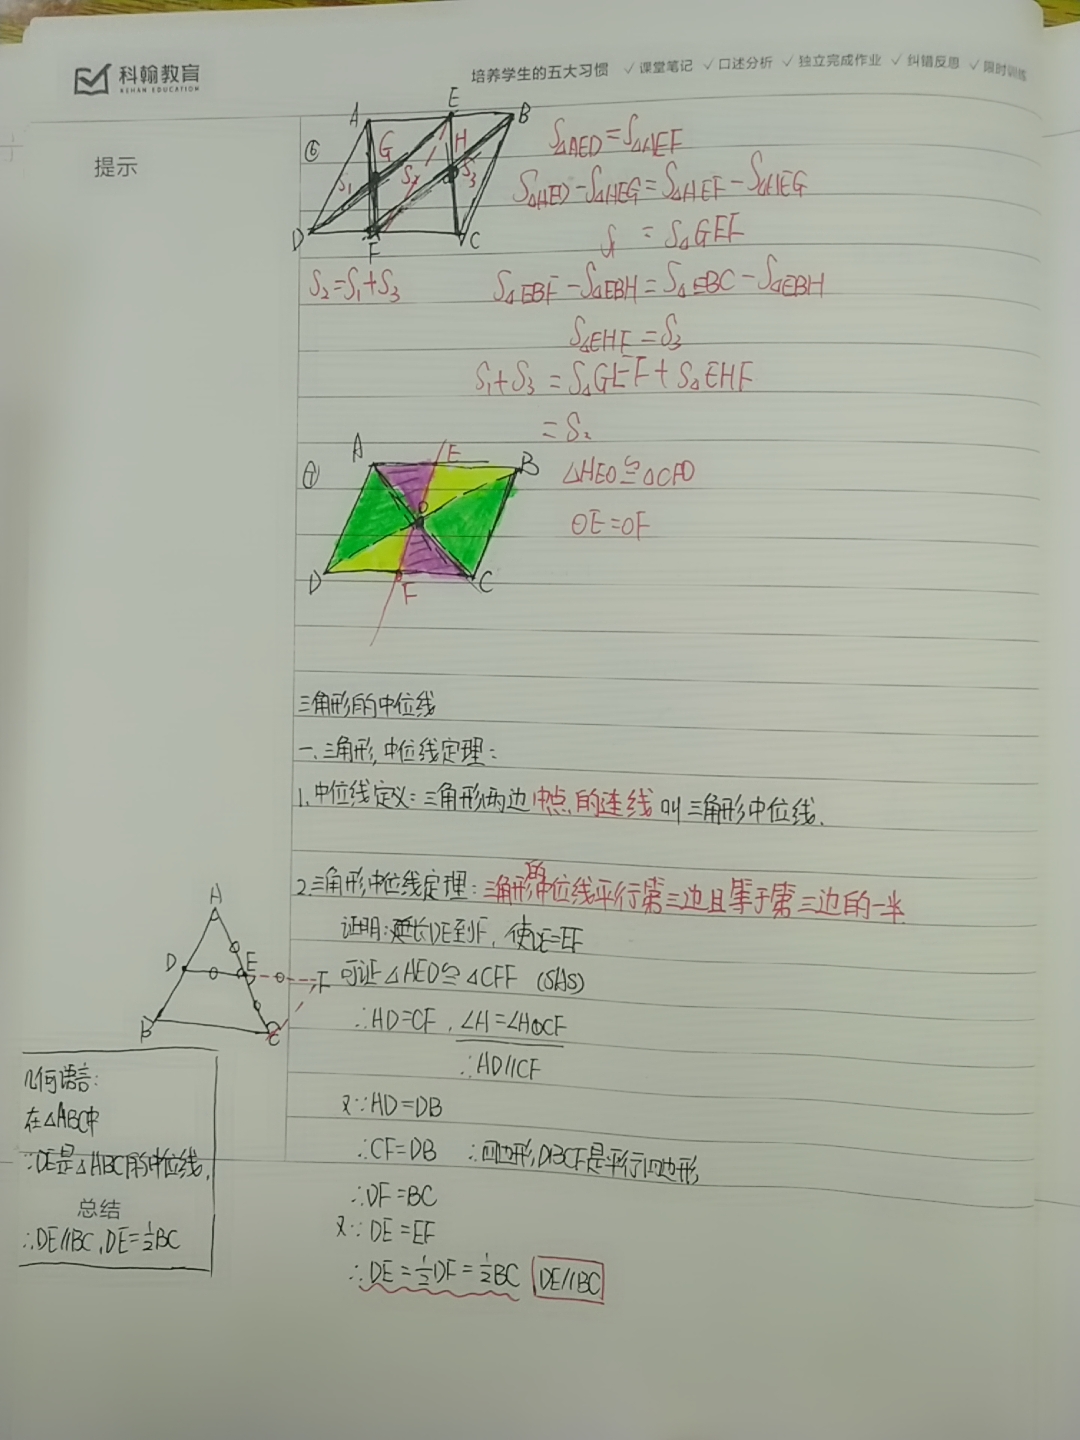 科翰教育
KEHAN EDUCATION
培养学生的五大习惯 ✓课堂笔记 ✓口述分析 ✓独立完成作业 ✓纠错反思 ✓限时训练
提示
⑥
A E B
G H
S₁ S₂ S₃
D F C
S△AED=S△AEF
S△AED-S△AEG=S△AEF-S△AEG
S₁ = S△GEF
S₂=S₁+S₃
S△EBF-S△EBH=S△EBC-S△EBH
S△EHF=S₃
S₁+S₃=S△GEF+S△EHF
=S₂
⑦
A E B
O
D F C
△AEO≌△CFO
OE=OF
三角形的中位线
一.三角形中位线定理:
1.中位线定义:三角形两边中点的连线叫三角形中位线.
2.三角形中位线定理:三角形的中位线平行第三边且等于第三边的一半
证明:延长DE到F,使DE=EF
可证△AED≌△CEF (SAS)
∴AD=CF,∠A=∠ACF
∴AD//CF
又∵AD=DB
∴CF=DB ∴四边形DBCF是平行四边形
∴DF=BC
又∵DE=EF
∴DE=½DF=½BC DE//BC
A
D E F
B C
几何语言:
在△ABC中
∵DE是△ABC的中位线,
总结
∴DE//BC,DE=½BC